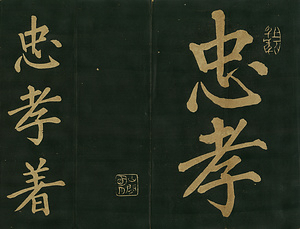 忠孝
忠孝著